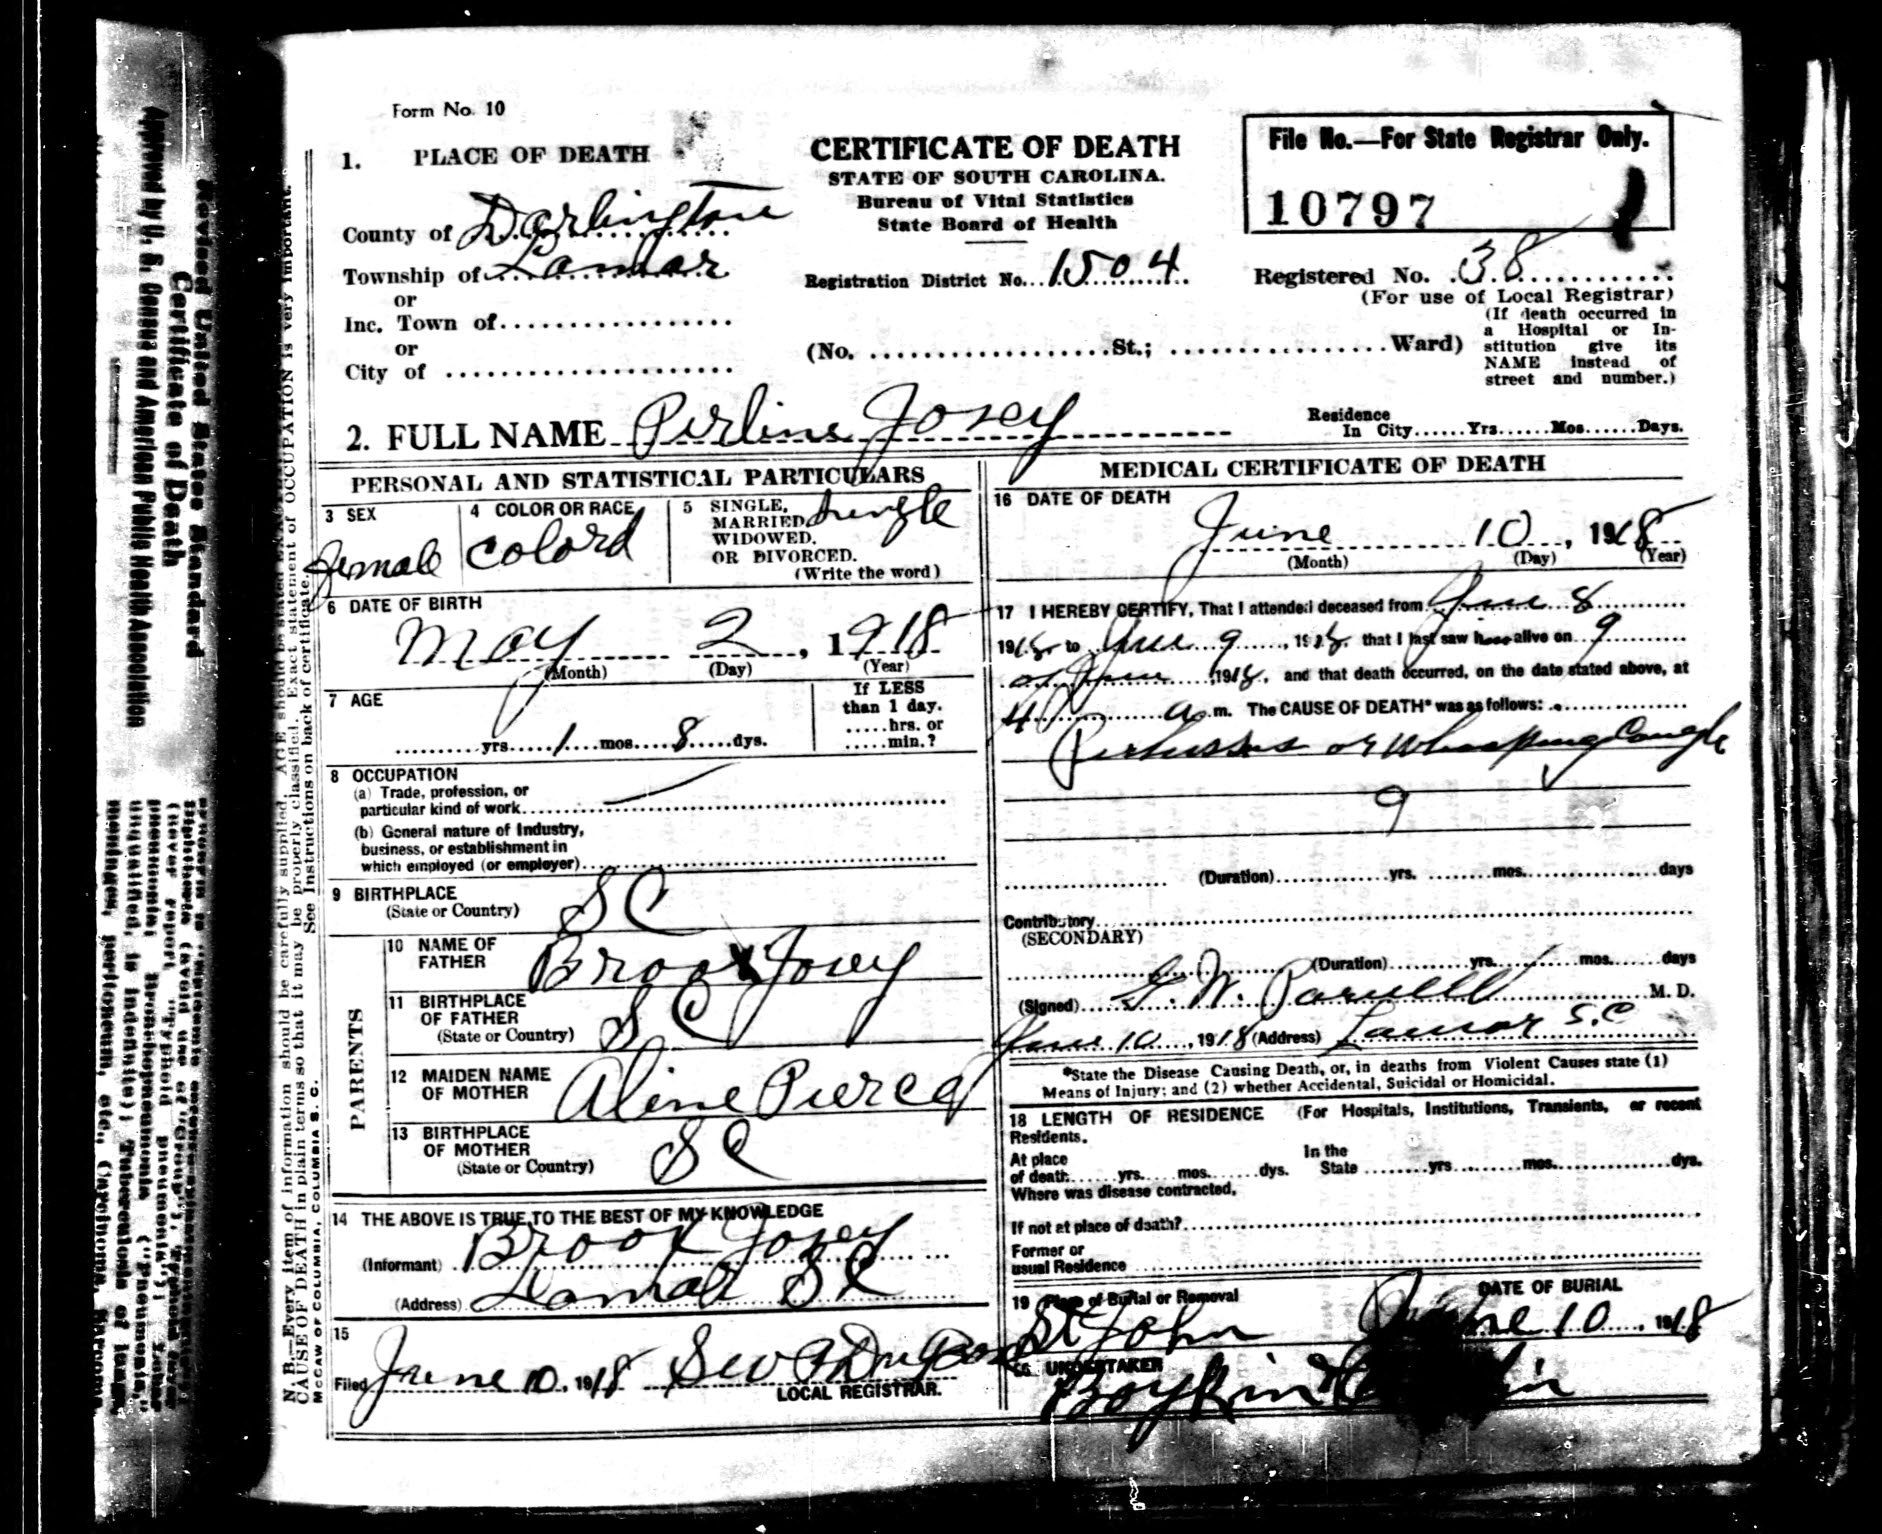 Form No. 10
1. PLACE OF DEATH
County of Darlington
Township of Lamar
or
Inc. Town of
or
City of
CERTIFICATE OF DEATH
STATE OF SOUTH CAROLINA.
Bureau of Vital Statistics
State Board of Health
Registration District No. 1504
(No. St.; Ward)
File No.—For State Registrar Only.
10797
Registered No. 38
(For use of Local Registrar)
(If death occurred in
a Hospital or In-
stitution give its
NAME instead of
street and number.)
2. FULL NAME Perline Josey
Residence
In City Yrs. Mos. Days.
PERSONAL AND STATISTICAL PARTICULARS
3 SEX
female
4 COLOR OR RACE
Colord
5 SINGLE,
MARRIED,
WIDOWED,
OR DIVORCED.
(Write the word)
single
6 DATE OF BIRTH
May 2, 1918
(Month) (Day) (Year)
7 AGE
yrs. 1 mos. 8 dys.
If LESS
than 1 day.
hrs. or
min.?
8 OCCUPATION
(a) Trade, profession, or
particular kind of work
(b) General nature of Industry,
business, or establishment in
which employed (or employer)
9 BIRTHPLACE
(State or Country)
S C
PARENTS
10 NAME OF
FATHER
Brook Josey
11 BIRTHPLACE
OF FATHER
(State or Country)
S C
12 MAIDEN NAME
OF MOTHER
Aline Pierce
13 BIRTHPLACE
OF MOTHER
(State or Country)
S C
14 THE ABOVE IS TRUE TO THE BEST OF MY KNOWLEDGE
(Informant) Brook Josey
(Address) Lamar S C
15
Filed June 10, 1918
LOCAL REGISTRAR.
MEDICAL CERTIFICATE OF DEATH
16 DATE OF DEATH
June 10, 1918
(Month) (Day) (Year)
17 I HEREBY CERTIFY, That I attended deceased from June 8
1918 to June 9, 1918, that I last saw h alive on 9
of June, 1918, and that death occurred, on the date stated above, at
4 a. m. The CAUSE OF DEATH* was as follows:
Pertussis or Whooping Cough
9
(Duration) yrs. mos. days
Contributory
(SECONDARY)
(Duration) yrs. mos. days
(Signed) G. W. Parnell M. D.
June 10, 1918 (Address) Lamar S.C
*State the Disease Causing Death, or, in deaths from Violent Causes state (1)
Means of Injury; and (2) whether Accidental, Suicidal or Homicidal.
18 LENGTH OF RESIDENCE (For Hospitals, Institutions, Transients, or recent
Residents.
At place
of death yrs. mos. dys.
In the
State yrs. mos. dys.
Where was disease contracted,
If not at place of death?
Former or
usual Residence
19 Place of Burial or Removal
St John
DATE OF BURIAL
June 10, 1918
UNDERTAKER
Boykin
N. B.—Every item of information should be carefully supplied. AGE should be stated
CAUSE OF DEATH in plain terms so that it may be properly classified. Exact statement of OCCUPATION is very important.
See Instructions on back of certificate.
McCAW OF COLUMBIA, COLUMBIA S. C.
Revised United States Standard
Certificate of Death
Approved by U. S. Census and American Public Health Association